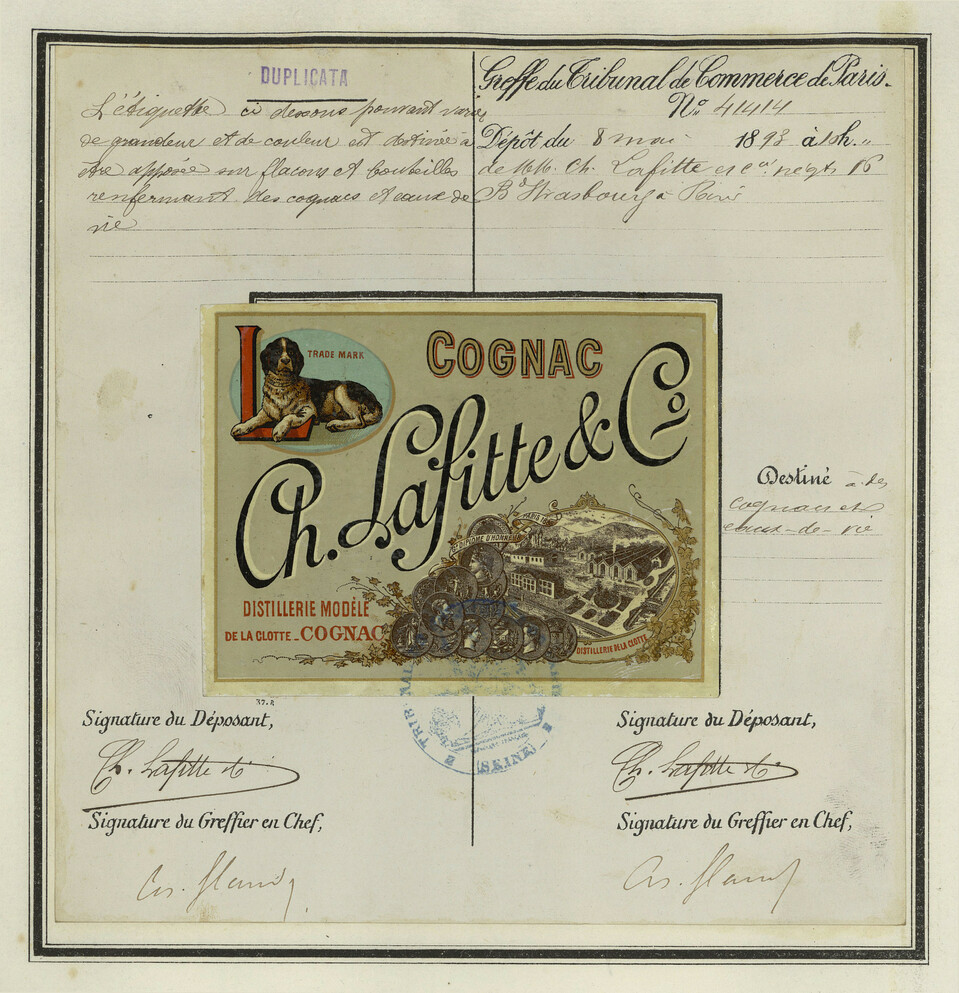 DUPLICATA
L'étiquette ci dessous pouvant varier
de grandeur et de couleur est destinée à
être apposée sur flacons et bouteilles
renfermant des cognacs et eaux de
vie
Greffe du Tribunal de Commerce de Paris.
N° 41414
Dépôt du 8 mai 1893 à 1 h. "
de MM. Ch. Lafitte et Cie négts 16
Bd Strasbourg à Paris
TRADE MARK
L
COGNAC
Ch. Lafitte & Co
DIPLOME D'HONNEUR
PARIS
DISTILLERIE MODÈLE
DE LA CLOTTE - COGNAC
DISTILLERIE DE LA CLOTTE
Destiné à des
cognacs et
eaux-de-vie
37.2
TRIBUNAL
(SEINE)
Signature du Déposant,
Ch. Lafitte & Co
Signature du Greffier en Chef,
Signature du Déposant,
Ch. Lafitte & Co
Signature du Greffier en Chef,